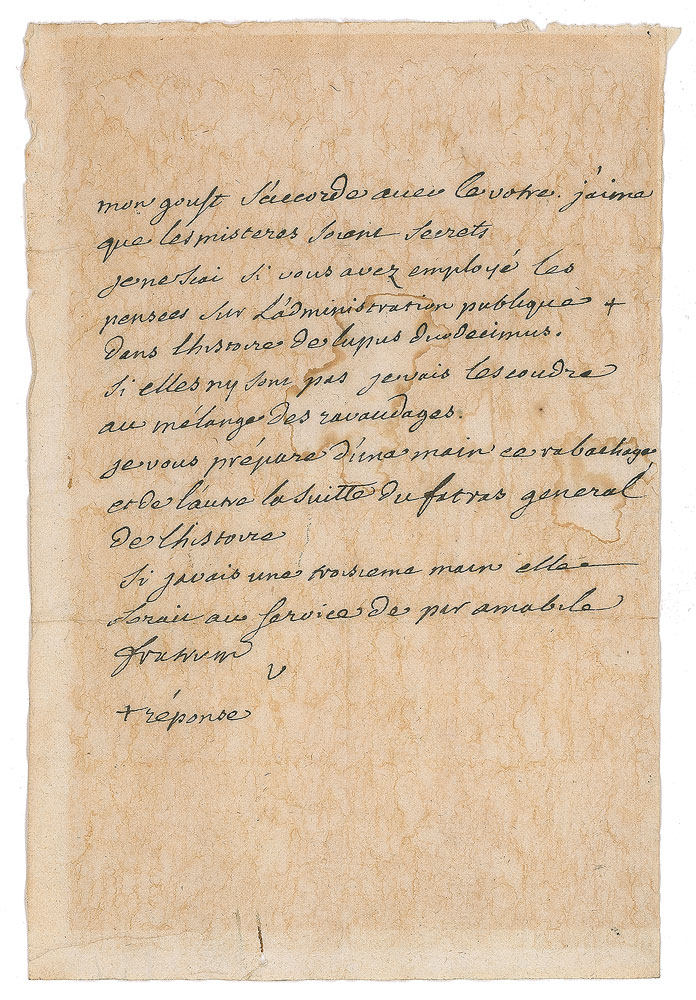 mon goust s'accorde avec le votre. j'aime
que les misteres soient secrets
je ne scai si vous avez employé les
pensees sur L'administration publique +
dans l'histoire de lupus duodecimus.
si elles ny sont pas je vais les coudre
au mélange des ravaudages.
je vous prépare d'une main ce rabachage
et de l'autre la suitte du fatras general
de l'histoire
si javais une troisieme main elle
serait au service de par amabile
fratrum
V
+ réponse